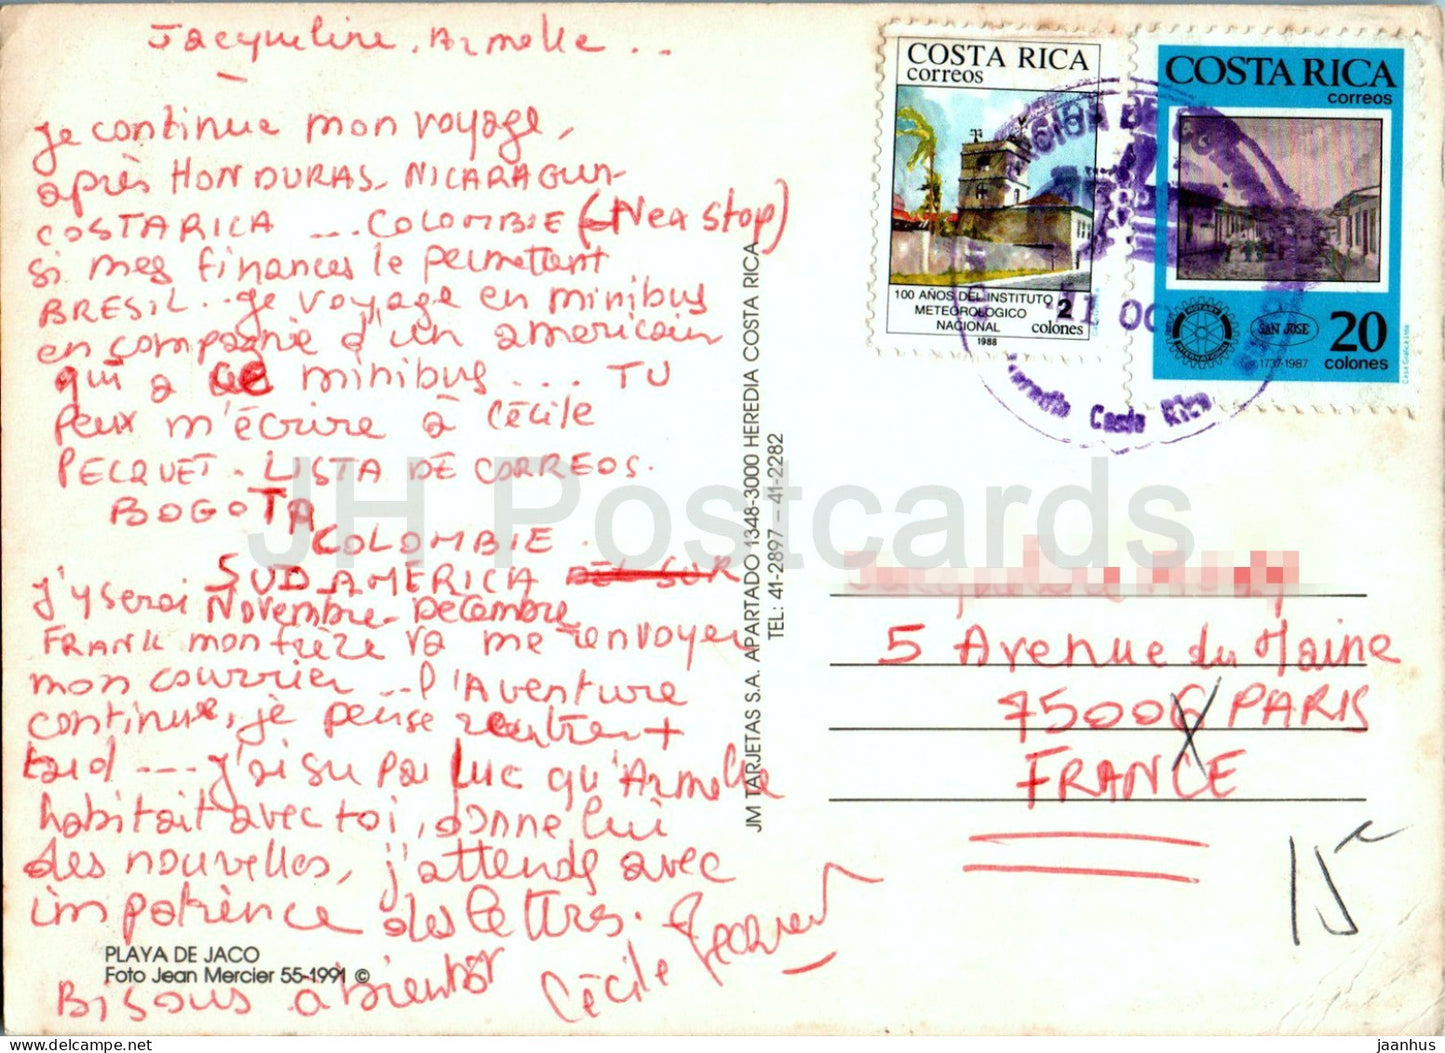 Jacqueline, Armelle...
Je continue mon voyage,
après HONDURAS, NICARAGUA
COSTARICA ... COLOMBIE (Nex stop)
si mes finances le permettent
BRESIL.. Je voyage en minibus
en compagnie d'un americain
qui a ce minibus .... TU
Peux m'écrire à Cécile
PECQUET. LISTA DE CORREOS.
BOGOTA
COLOMBIE.
SUD AMÉRICA DEL SUR
J'y serai Novembre-Decembre
FRANK mon frère va me renvoyer
mon courrier ... l'Aventure
continue, je pense rentrer +
tard .... J'ai su par Luc qu'Armelle
habitait avec toi, donne lui
des nouvelles, j'attends avec
impatience des lettres.
Bisous à bientôt Cécile Pecquet
PLAYA DE JACO
Foto Jean Mercier 55-1991 ©
JM TARJETAS S.A. APARTADO 1348-3000 HEREDIA COSTA RICA
TEL: 41-2897 – 41-2282
COSTA RICA
correos
100 AÑOS DEL INSTITUTO
METEOROLOGICO
NACIONAL
2
colones
1988
COSTA RICA
correos
ROTARY
INTERNATIONAL
SAN JOSE
1737-1987
20
colones
Casa Grafica Ltda
11 OC
Heredia Costa Rica
5 Avenue du Maine
75006 PARIS
FRANCE
15
JH Postcards
delcampe.net
jaanhus